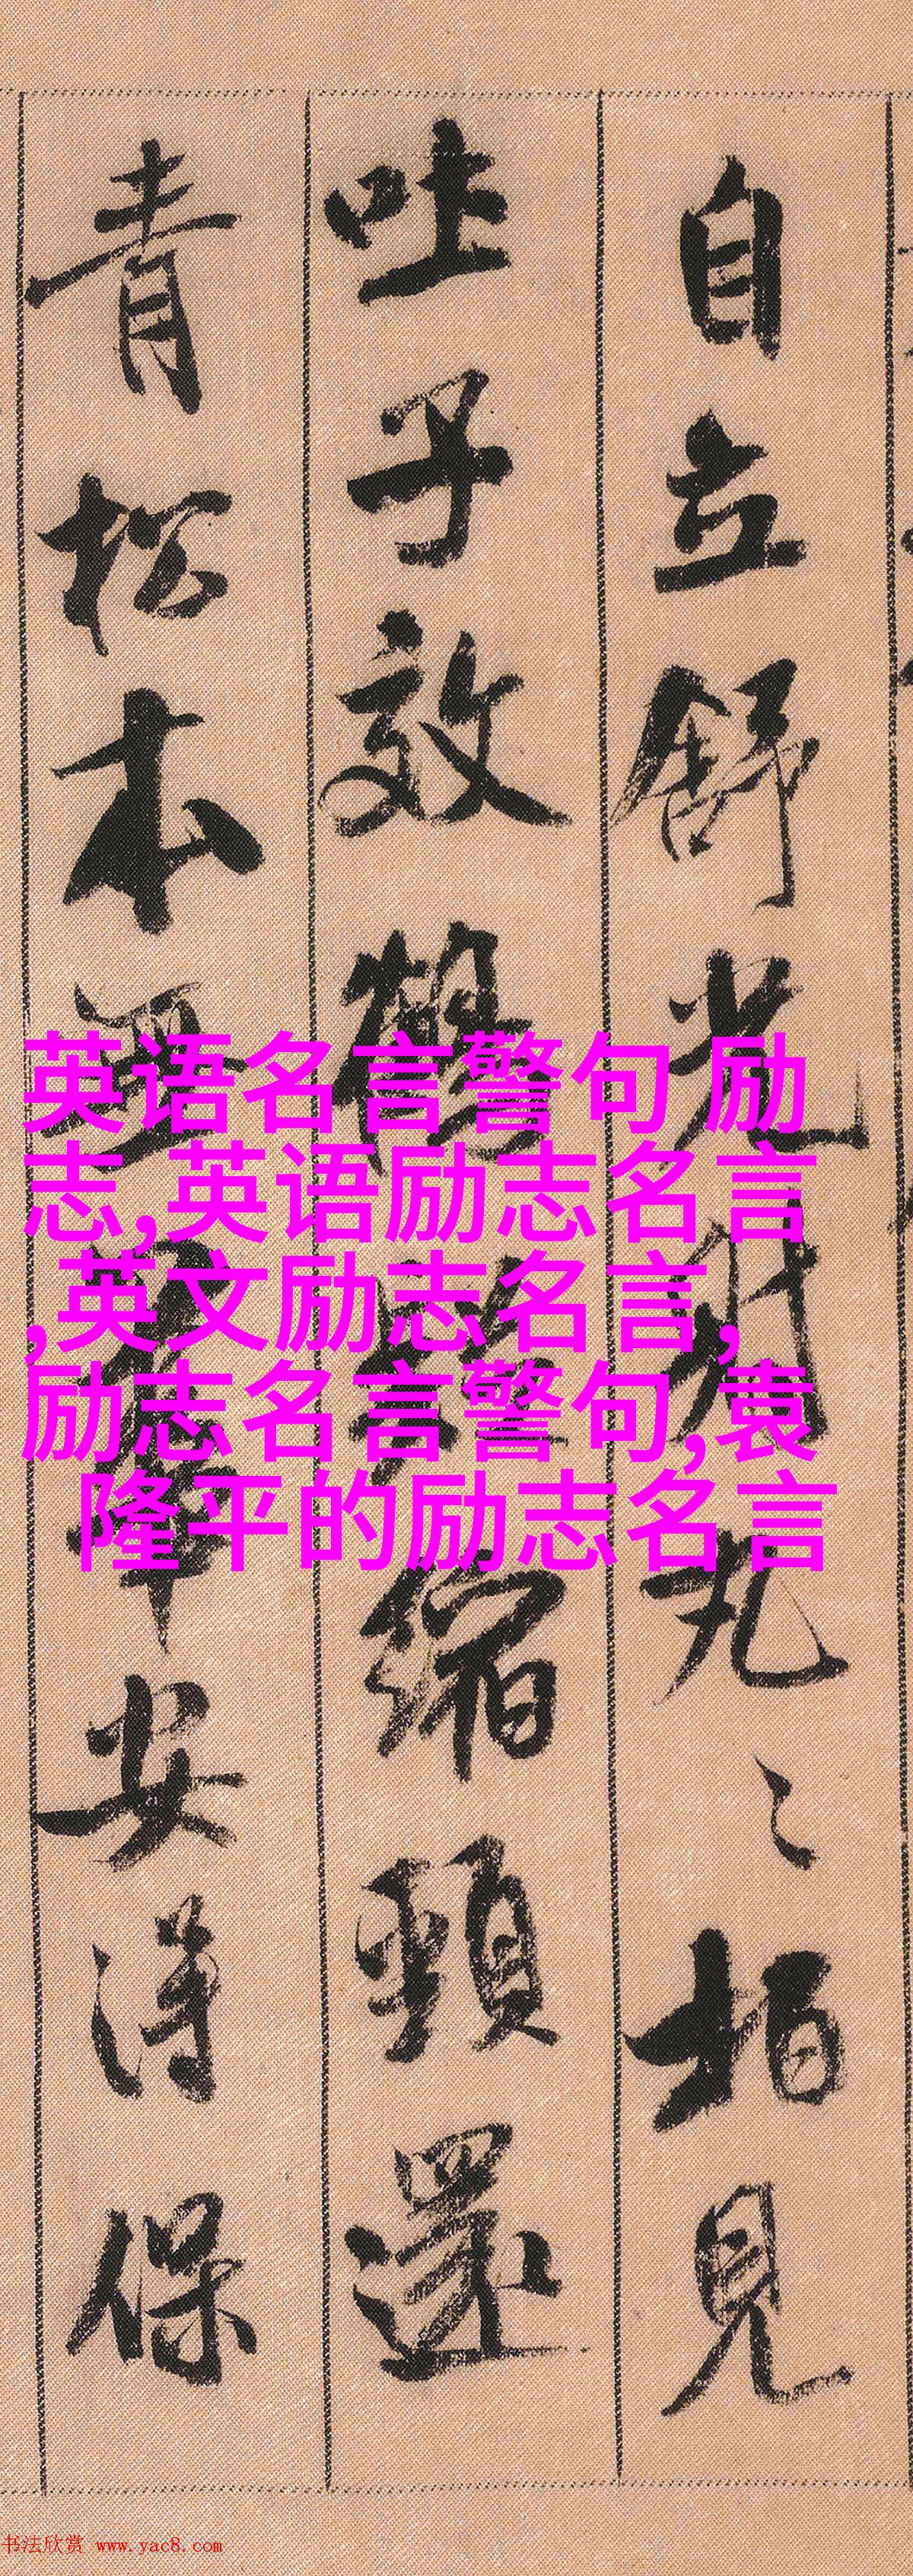 自立舒光射丸〻柏見
吐子效鶴疑縮頸還
青松本無華安得保
英语名言警句 励
志,英语励志名言
,英文励志名言,
励志名言警句,袁
隆平的励志名言
书法欣赏 www.yac8.com